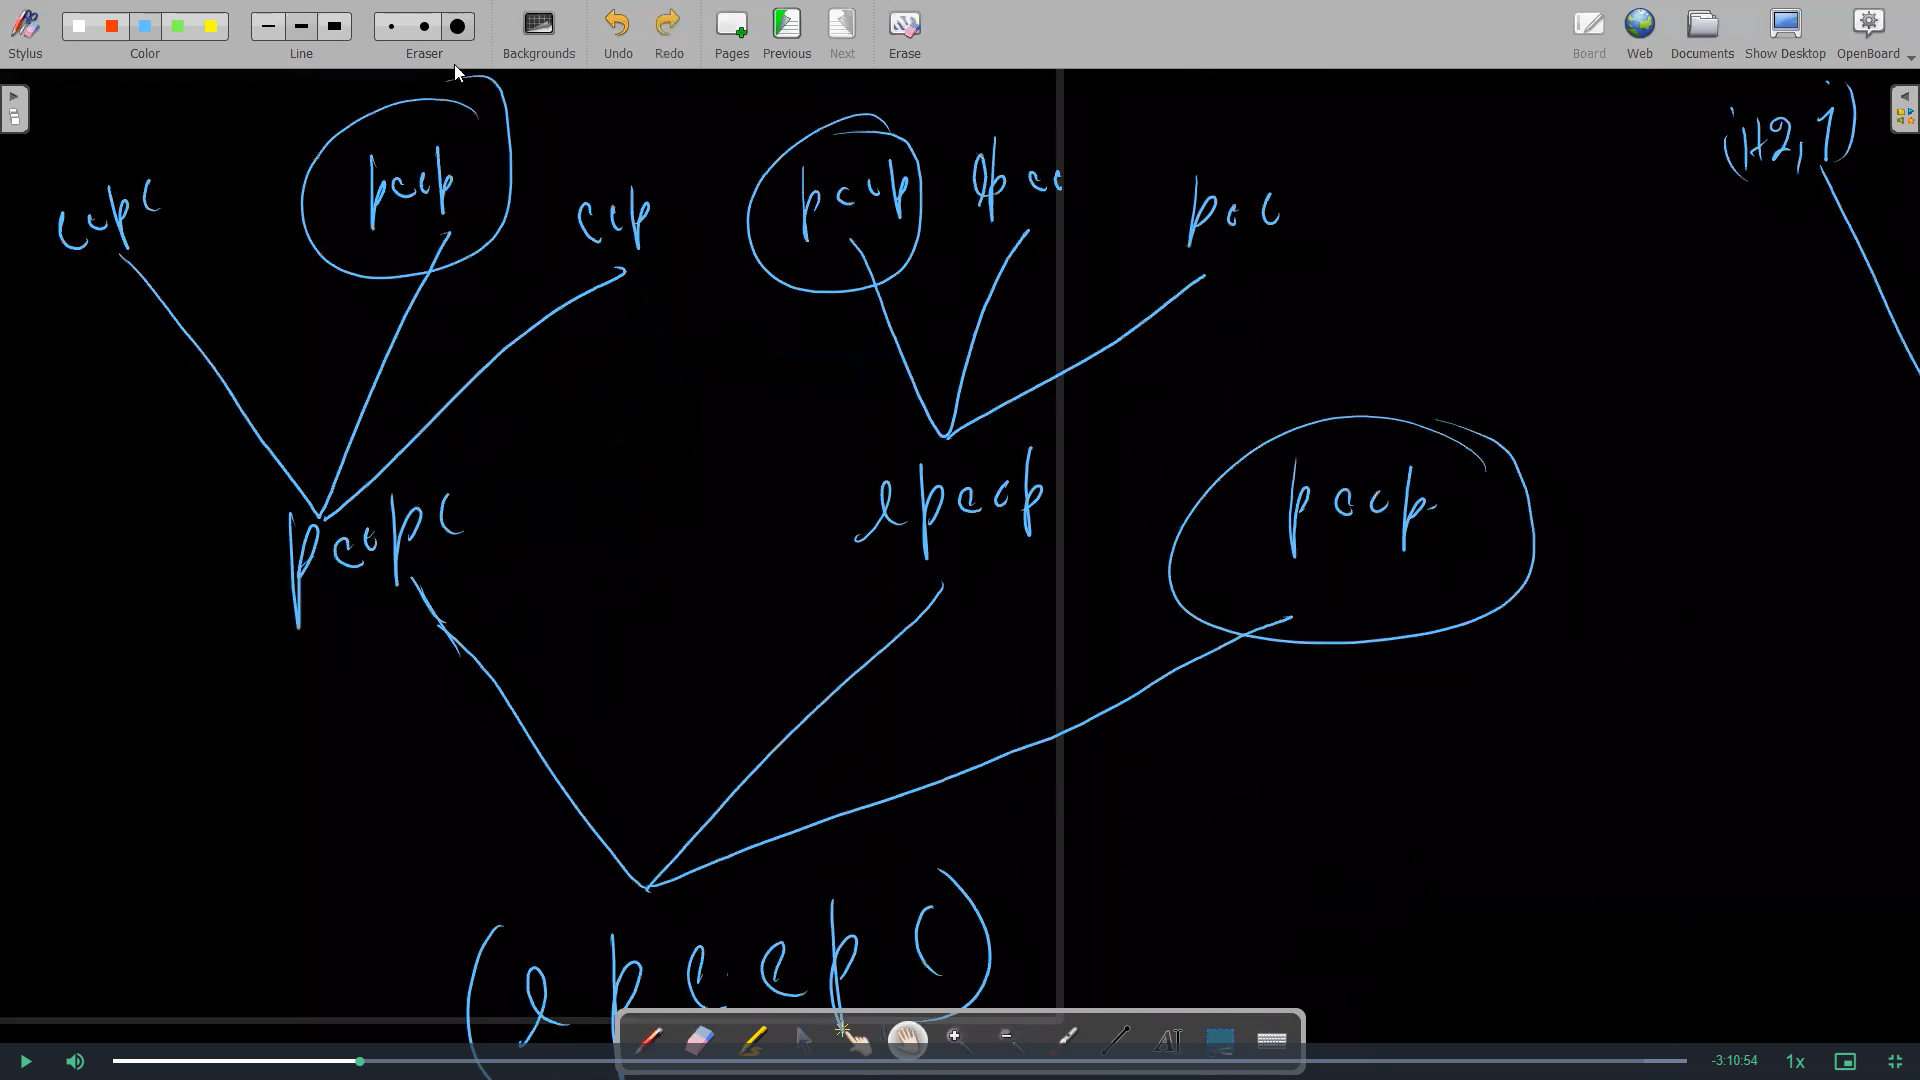 Stylus Color Line Eraser Backgrounds Undo Redo Pages Previous Next Erase Board Web Documents Show Desktop OpenBoard
(i+2, 1)
ccpc pccp ccp pccp epcc pcc
pccpc epccp pccp
(epccpc)
-3:10:54 1x